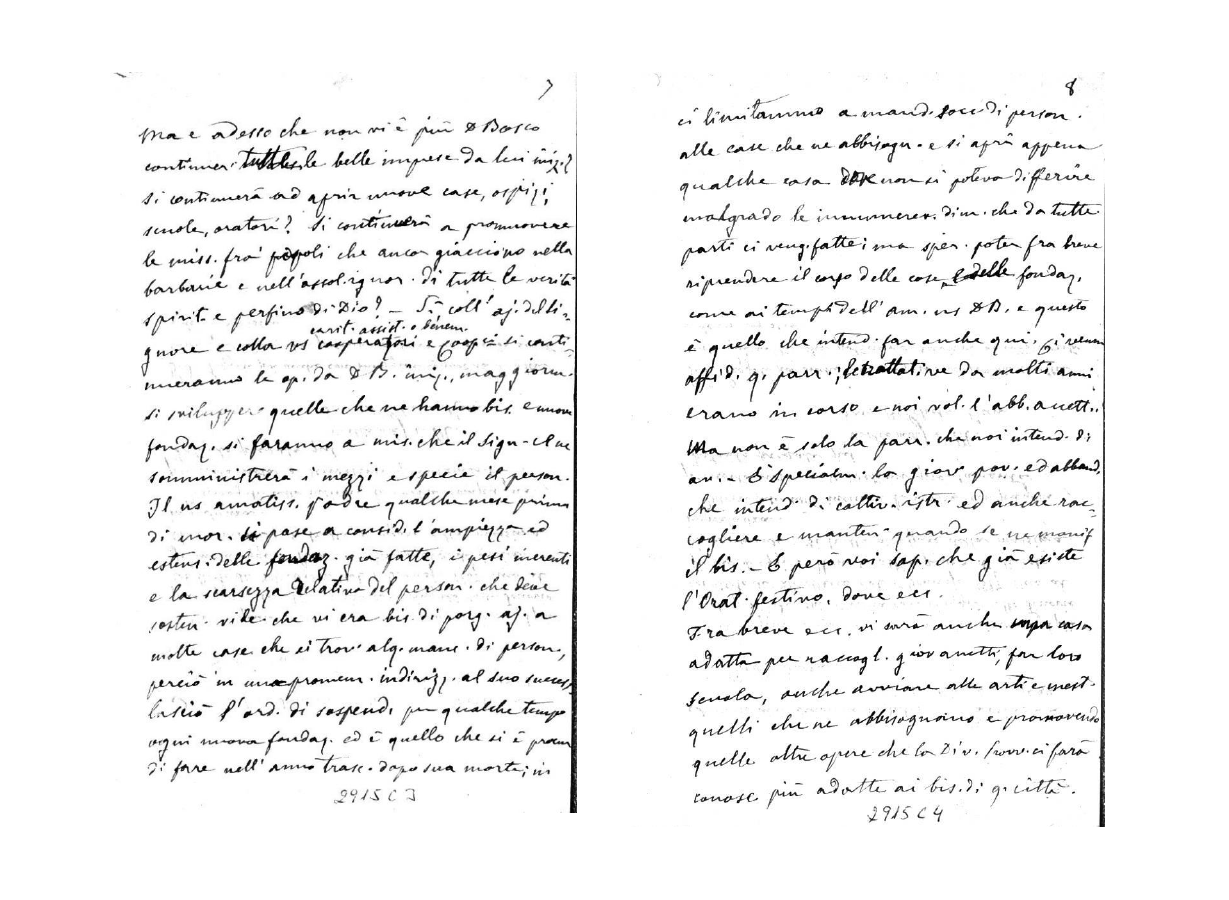 7
Ma e adesso che non vi è più D Bosco
continuer. tutte le belle imprese da lui iniz.?
si continuerà ad aprir nuove case, ospizi,
scuole, oratori? Si continuerà a promuovere
le miss. fra popoli che ancor giacciono nella
barbarie e nell'assol. ignor. di tutte le verità
spirit. e perfino di Dio? – Sì coll' aj. del Si-
carit. assist. e benem.
gnore e colla vs cooperatori e Cooper si conti-
nueranno le op. da D B. iniz., maggiorm.
si svilupper quelle che ne hanno bis. e nuove
fondaz. si faranno a mis. che il Sign. ce ne
somministrerà i mezzi e specie il person.
Il ns amatiss. Padre qualche mese prima
di mor. si pose a consid. l'ampiezza ed
estens. delle fondaz. già fatte, i pesi inerenti
e la scarsezza relativa del person. che deve
sosten. vide che vi era bis. di porg. aj. a
molte case che si trov. alq. manc. di person.,
perciò in una promem. indirizz. al suo success.
lasciò l'ord. di sospend. per qualche tempo
ogni nuova fondaz. ed è quello che si è procur
di fare nell'anno trasc. dopo sua morte; in
2915 C 3
8
ci limitammo a mand. socc. di person.
alle case che ne abbisogn. e si aprì appena
qualche casa che non si poteva differire
malgrado le innumerev. dim. che da tutte
parti ci veng. fatte; ma sper. poter fra breve
riprendere il corso delle cose e delle fondaz.
come ai tempi dell' am. ns D B. e questo
è quello che intend. far anche qui. Ci venne
affid. q. parr.; le trattative da molti anni
erano in corso e noi vol. l'abb. accett..
Ma non è solo la parr. che noi intend. di
av. – È specialm. la giov pov. ed abband.
che intend. di coltiv. istr. ed anche rac-
cogliere e manten quando se ne manif
il bis. – E però voi sap. che già esiste
l'Orat. festivo, dove ecc.
Fra breve ecc. vi sarà anche una casa
adatta per raccogl. giovanetti, far loro
scuola, anche avviare alle arti e mest.
quelli che ne abbisognano e promovendo
quelle altre opere che la Div. Provv. ci farà
conosc più adatte ai bis. di q. città.
2915 C 4